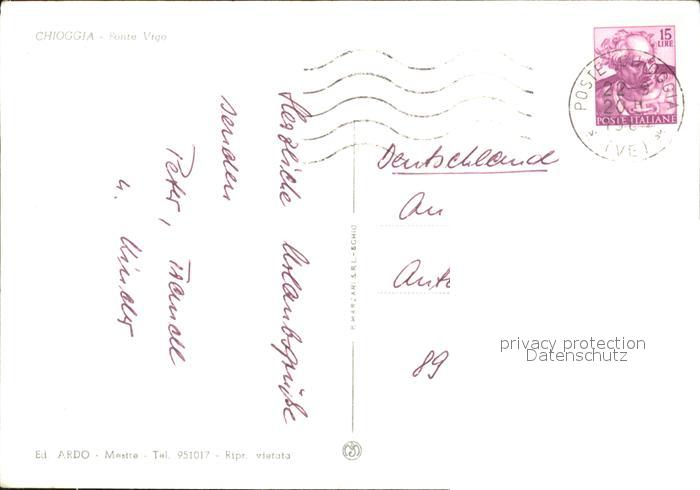 CHIOGGIA - Ponte Vigo
15
LIRE
POSTE ITALIANE
POSTE CHIOGGIA
22-8
20 H
(VE)
Herzliche Urlaubsgrüße
senden
Peter,
u. Kinder
Deutschland
An
89
privacy protection
Datenschutz
P. MARZARI S.R.L. - SCHIO
Ed. ARDO - Mestre - Tel. 951017 - Ripr. vietata